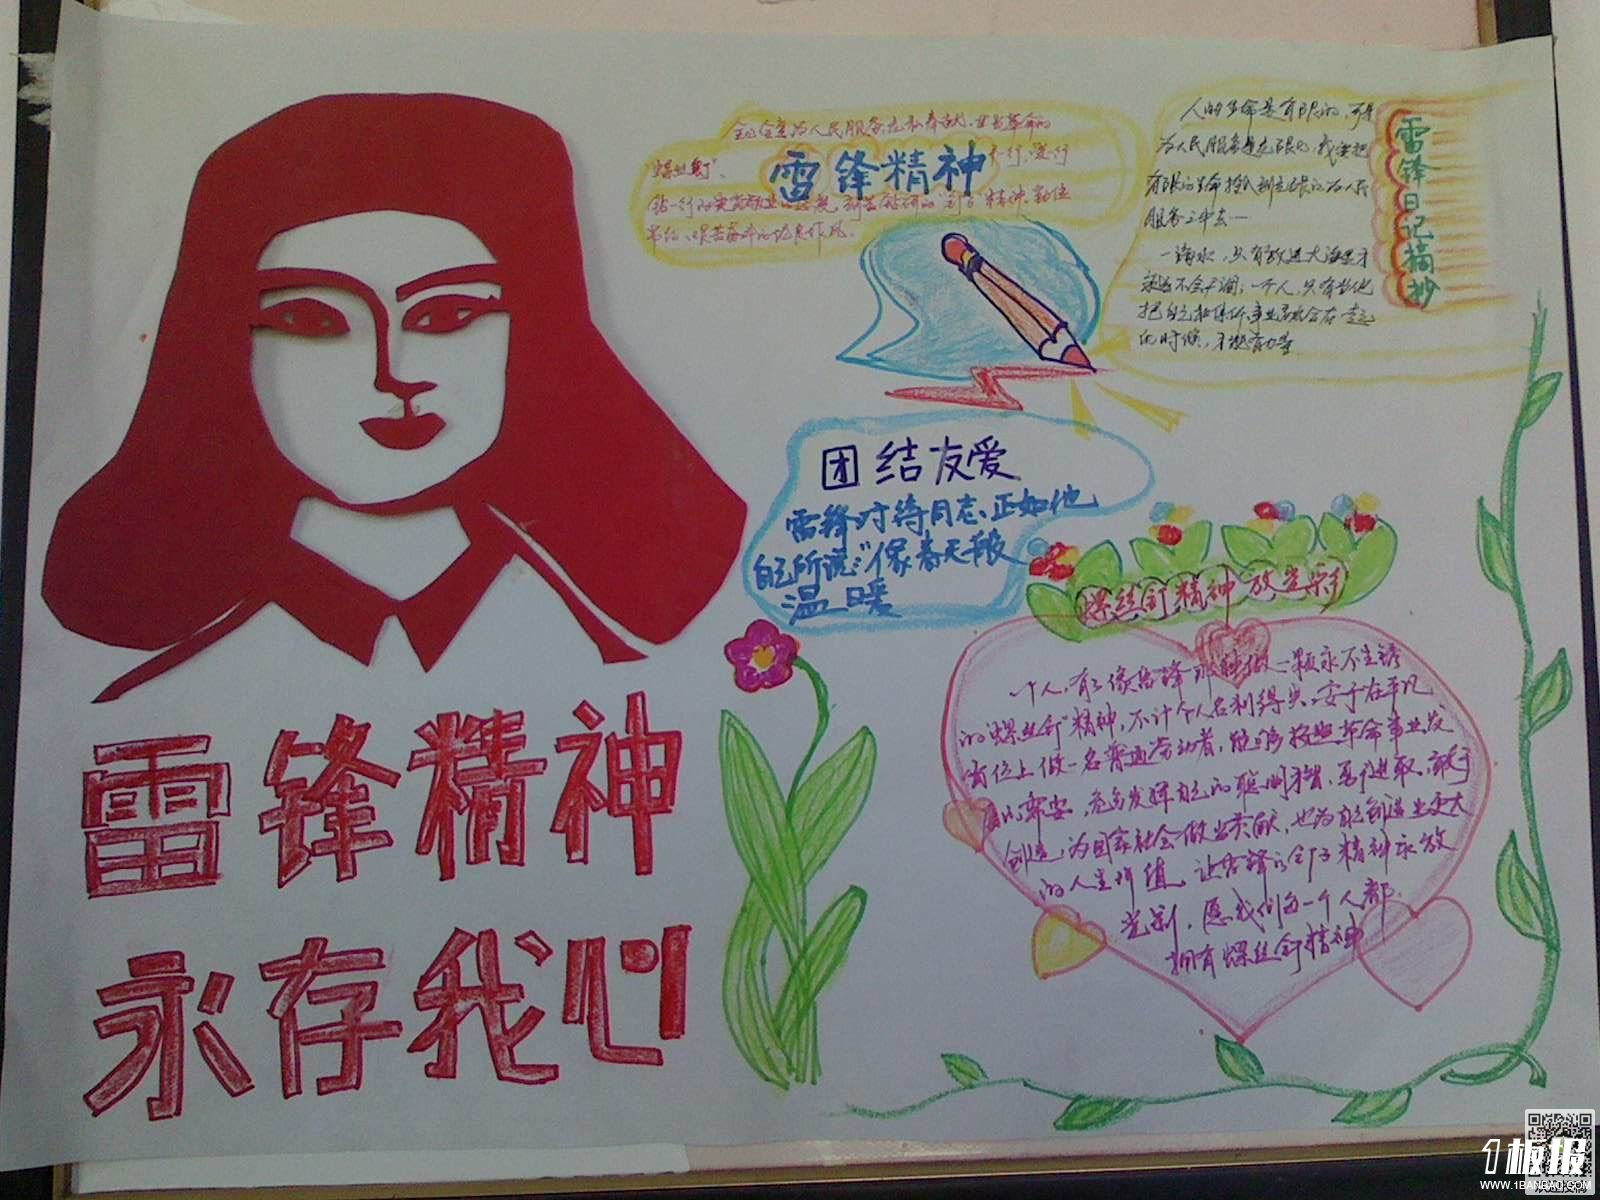 雷锋精神
永存我心
全心全意为人民服务,无私奉献,甘当革命的
"螺丝钉"、
雷锋精神
节约、艰苦奋斗的优良作风.
雷锋日记摘抄
人的生命是有限的,可是
为人民服务是无限的,我要把
有限的生命投入到无限的为人民
服务之中去…
一滴水,只有放进大海里才
永远不会干涸,一个人,只有当他
把自己和集体事业融合在一起
的时候,才能有力量
团结友爱
雷锋对待同志,正如他
自己所说:"像春天般
温暖
螺丝钉精神放光彩
一个人,有了像雷锋那种做一颗永不生锈
的"螺丝钉"精神,不计个人名利得失,安于在平凡
岗位上做一名普通劳动者,能够按照革命事业及
充分发挥自己的聪明才智,勇于进取,敢于
创造,为国家社会做出贡献,也为自己创造出更大
的人生价值.让雷锋的钉子精神永放
光彩,愿我们每一个人都
拥有螺丝钉精神
1板报
WWW.1BANBAO.COM